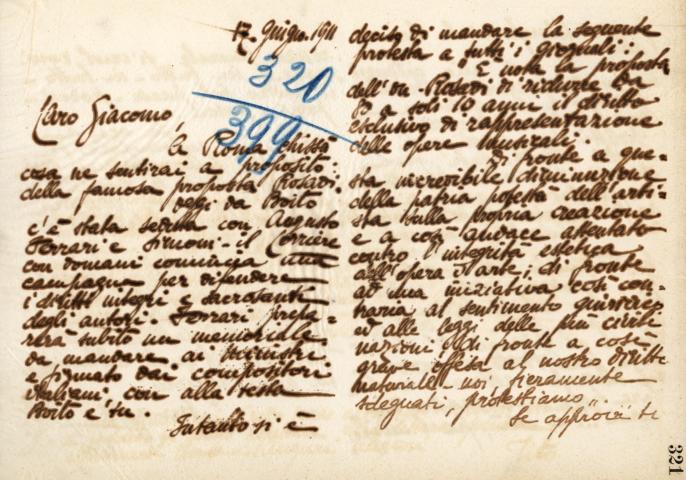 17. Giugno. 1911
320
399
Caro Giacomo,
a Roma chissà
cosa ne sentirai a proposito
della famosa proposta Rosadi.
Oggi da Boito
c'è stata seduta con Augusto
Ferrari e Simoni - il Corriere
con domani comincia una
campagna per difendere
i diritti integri e sacrosanti
degli autori. Ferrari prepa=
rerà subito un memoriale
da mandare ai Ministri
e firmato dai compositori
italiani, con alla testa
Boito e tu.
Intanto si è
deciso di mandare la seguente
protesta a tutti i giornali:
"È nota la proposta
dell'on. Rosadi di ridurre da
a soli 10 anni il diritto
esclusivo di rappresentazione
delle opere musicali.
Di fronte a que=
sta incredibile diminuzione
della patria potestà dell'arti=
sta sulla propria creazione
e a così audace attentato
contro l'integrità estetica
dell'opera d'arte; di fronte
ad una iniziativa così con=
traria al sentimento giuridico
ed alle leggi delle più civili
nazioni e di fronte a così
grave offesa al nostro diritto
materiale - noi fieramente
sdegnati, protestiamo".
Se approvi ti
321